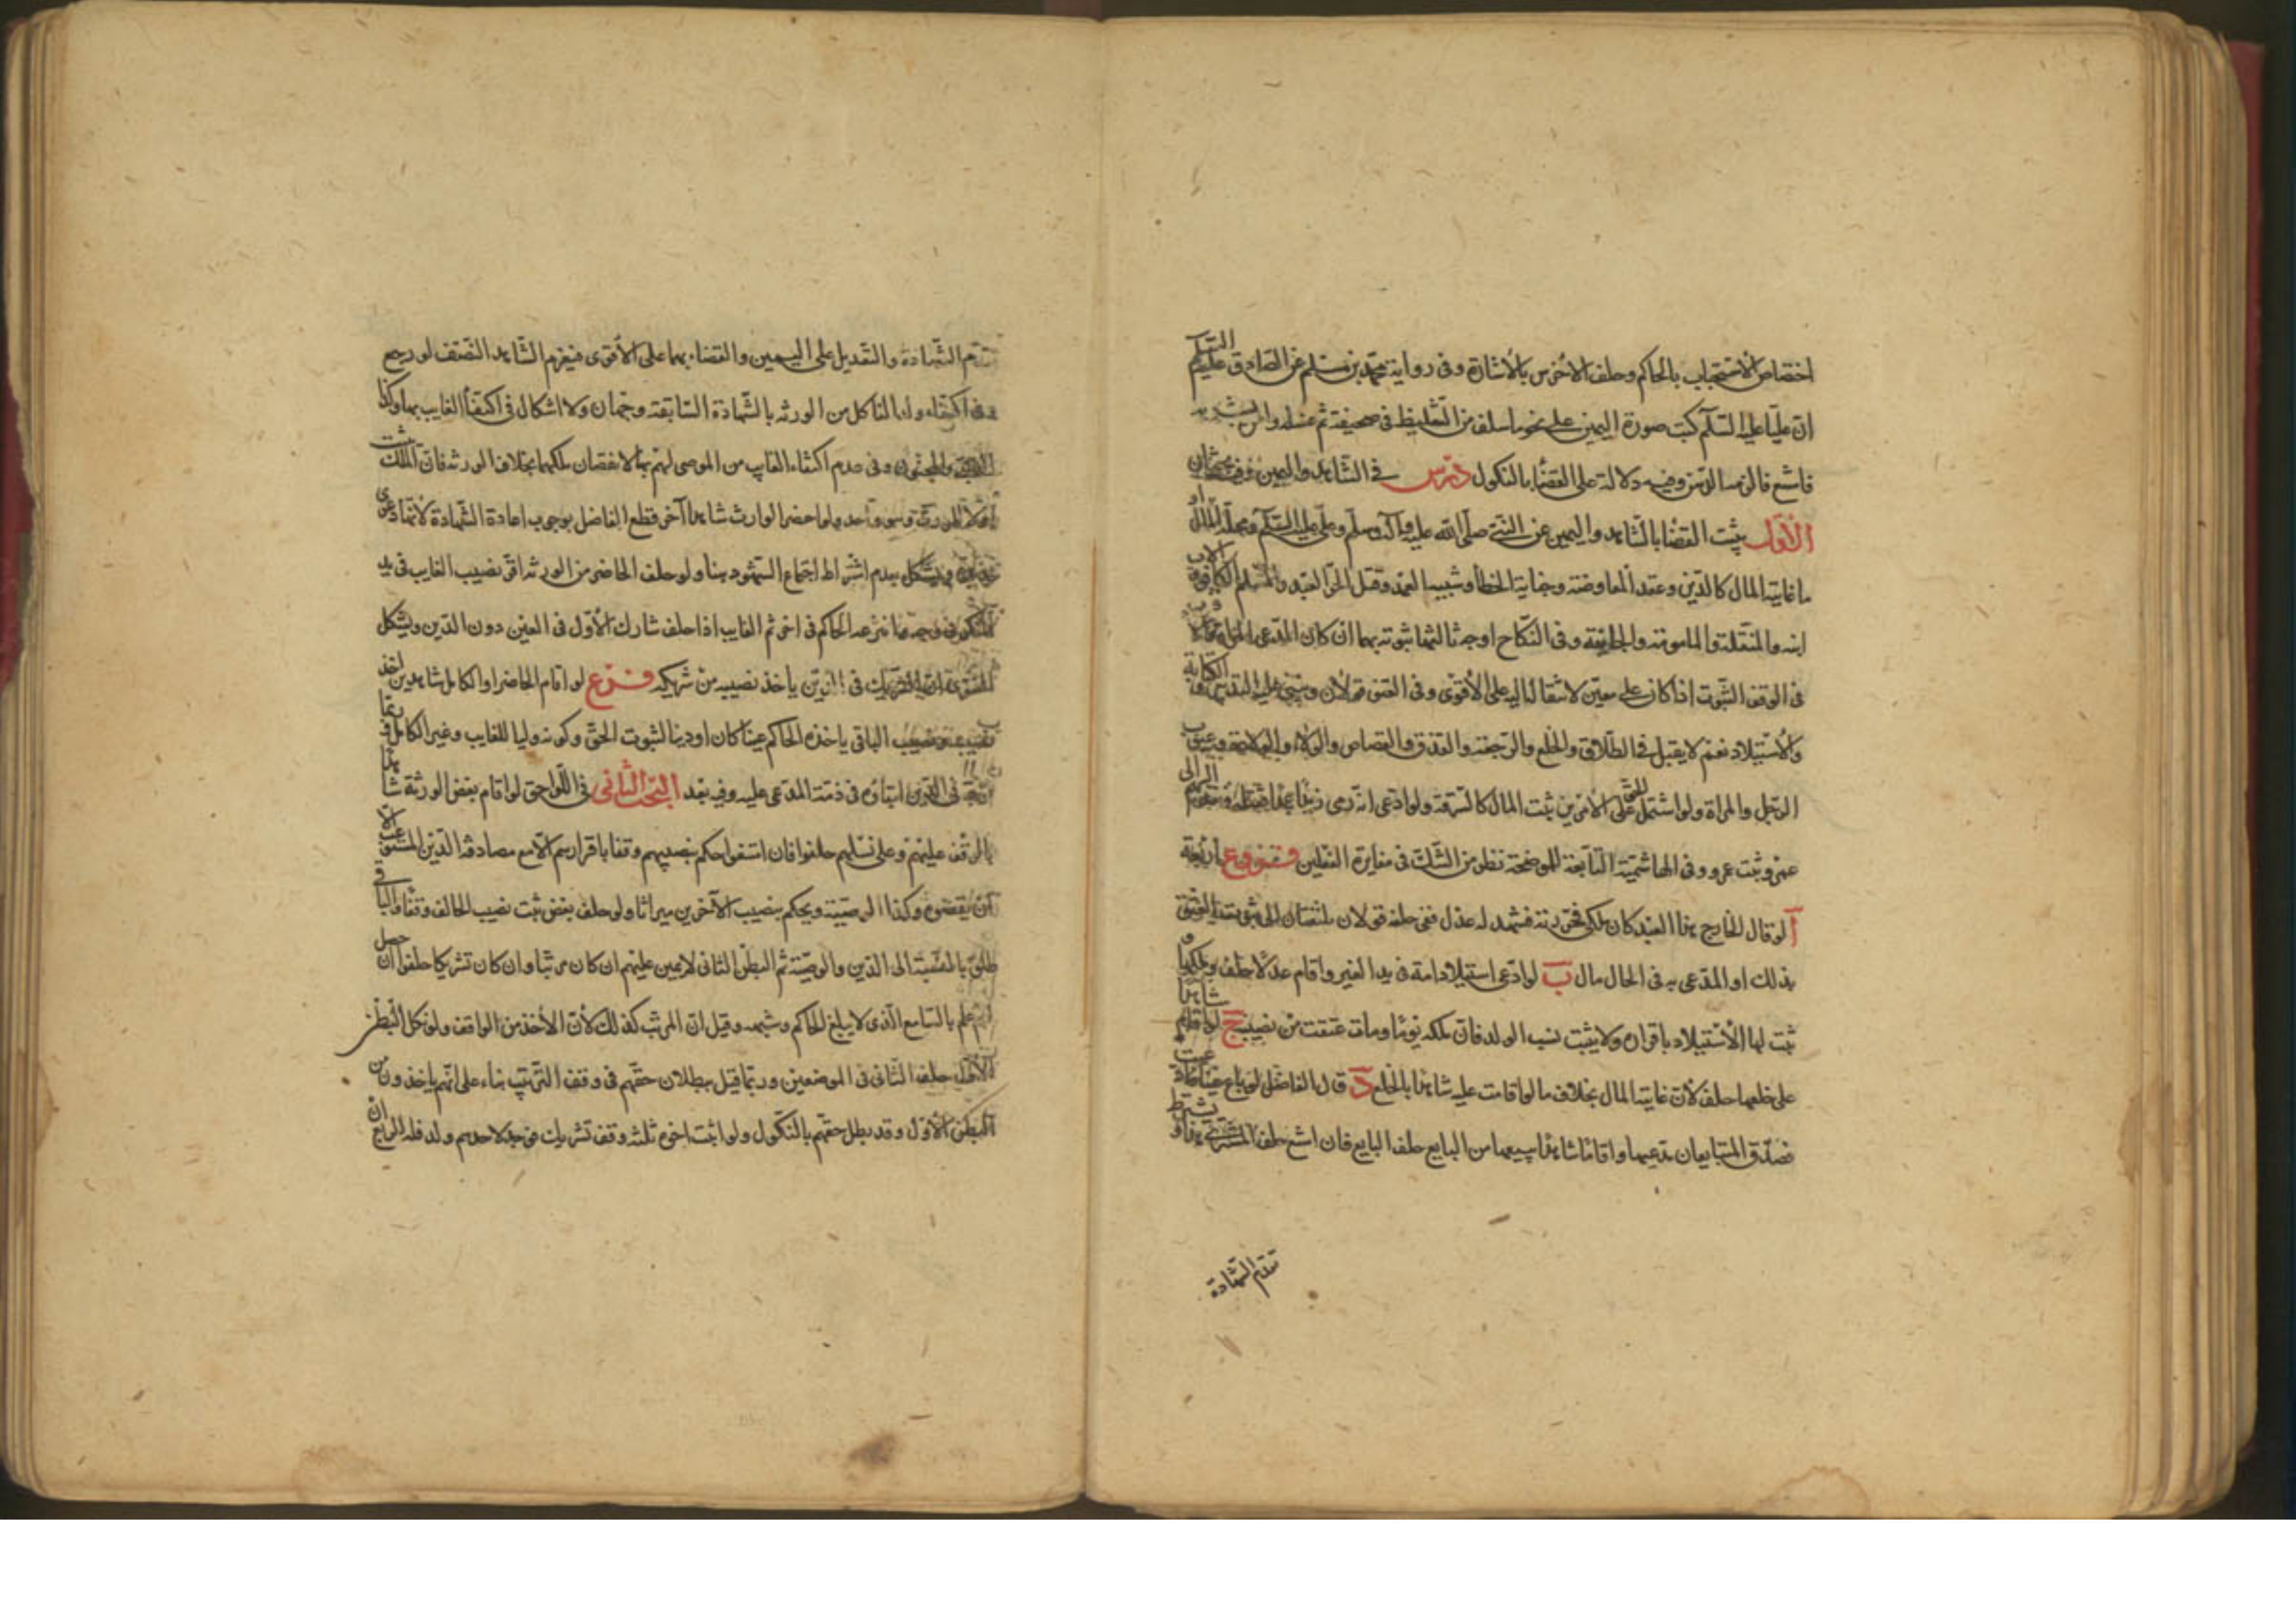 اختصاص الاستحباب بالحاكم وحلف الاخرس بالاشارة وفى رواية محمد بن مسلم عن الصادق عليه السلم
ان عليا عليه السلم كتب صورة اليمين على نحو ما سلف من التغليظ فى صحيفة ثم غسله وامر بشربه
فامتنع فالزمه الدين وفيه دلالة على القضا بالنكول درس في الشاهد واليمين وفيه بحثان
الاول يثبت القضا بالشاهد واليمين عن النبي صلى الله عليه وآله وسلم وعلى عليه السلم ومحله المال او
ما غايته المال كالدين وعقد المعاوضة وجناية الخطأ وشبيه العمد وقتل الحر العبد والمسلم الكافر والاب
ابنه والمنقلة والمامومة والجايفة وفى النكاح اوجه ثالثها ثبوته بهما ان كان المدعى المراة
فى الوقف الثبوت اذا كان على معين لانتقاله اليه على الاقوى وفى العتق قولان وينبنى عليه التدبير والكتابة
والاستيلاد نعم لا يقبل فى الطلاق والخلع والرجعة والقذف والقصاص والولاء والوكالة وعيوب
الرجل والمراة ولو اشتمل الحق على الامرين ثبت المال كالسرقة ولو ادعى انه رمى زيدا عمدا فقتله ومرق السهم الى
عمرو ثبت عمرو وفى الهاشمية التابعة للموضحة نظر من الشك فى مغايرة الفعلين فروع اربعة
آ لو قال الخارج هذا العبد كان ملكى فحررته فشهد له عدل ففى حلفه قولان ملتفتان الى ثبوت العتق
بذلك او المدعى به فى الحال مال ب لو ادعى استيلاد امة فى يد الغير واقام عدلا حلف وملكها و
ثبت لها الاستيلاد باقراره ولا يثبت نسب الولد فان ملكه يوما ومات عتقت من نصيبه ج لو اقام شاهدا
على خلعها حلف لان غايته المال بخلاف ما لو اقامت عليه شاهدا بالخلع د قال الفاضل لو باع عينا
فصدق المتبايعان مدعيها واقاما شاهدا ببيعها من البايع حلف البايع فان امتنع حلف المشترى
تقدم الشهادة
تقدم الشهادة والتعديل على اليمين والقضاء بهما على الاقوى فيغرم الشاهد النصف لو رجع
وفى اكتفاء الناكل من الورثة بالشهادة السابقة وجهان ولا اشكال فى اكتفاء الغايب بها وكذا
الصبي والمجنون وفى عدم اكتفاء الغايب من الموصى لهم بها لانفصال ملكهما بخلاف الورثة فان الملك يثبت
اولا للمورث وهو واحد ولو احضر الوارث شاهدا آخر قطع الفاضل بوجوب اعادة الشهادة لانها دعوى
ويشكل بعدم اشتراط اجتماع الشهود هنا ولو حلف الحاضر من الورثة اقر نصيب الغايب فى يد
وفى وجه ما انتزعه الحاكم فى اخى ثم الغايب اذا حلف شارك الاول فى العين دون الدين ويشكل
الشريك فى الدين ياخذ نصيبه من شريكه فرع لو اقام الحاضر او الكامل شاهدين اخذ
نصيبه ونصيب الباقى ياخذه الحاكم عينا كان او دينا لثبوت الحق وكونه وليا للغايب وغير الكامل وربما
فى الدين ابقاؤه فى ذمة المدعى عليه وفيه بعد البحث الثانى فى اللواحق لو اقام بعض الورثة شاهدا
بالوقف عليهم وعلى نسلهم حلفوا فان امتنعوا حكم بنصيبهم وقفا باقرارهم الا مع مصادفة الدين المستوعب الا
ان يقضوه وكذا الوصية ويحكم بنصيب الآخرين ميراثا ولو حلف بعض ثبت نصيب الحالف وقفا والباقى
طلق بالنسبة الى الدين والوصية ثم البطن الثانى لا يمين عليهم ان كان مرتبا وان كان تشريكا حلفوا ان حصل
لهم علم بالتسامع الذى لا يبلغ الحاكم وشبهه وقيل ان المرتب كذلك لان الاخذ من الواقف ولو نكل البطن
الاول حلف الثانى فى الموضعين وربما قيل ببطلان حقهم فى وقف الترتيب بناء على انهم ياخذون من
البطن الاول وقد بطل حقهم بالنكول ولو اثبت اخوة ثلثة وقف تشريك فتجدد لاحدهم ولد فله الرابع ان